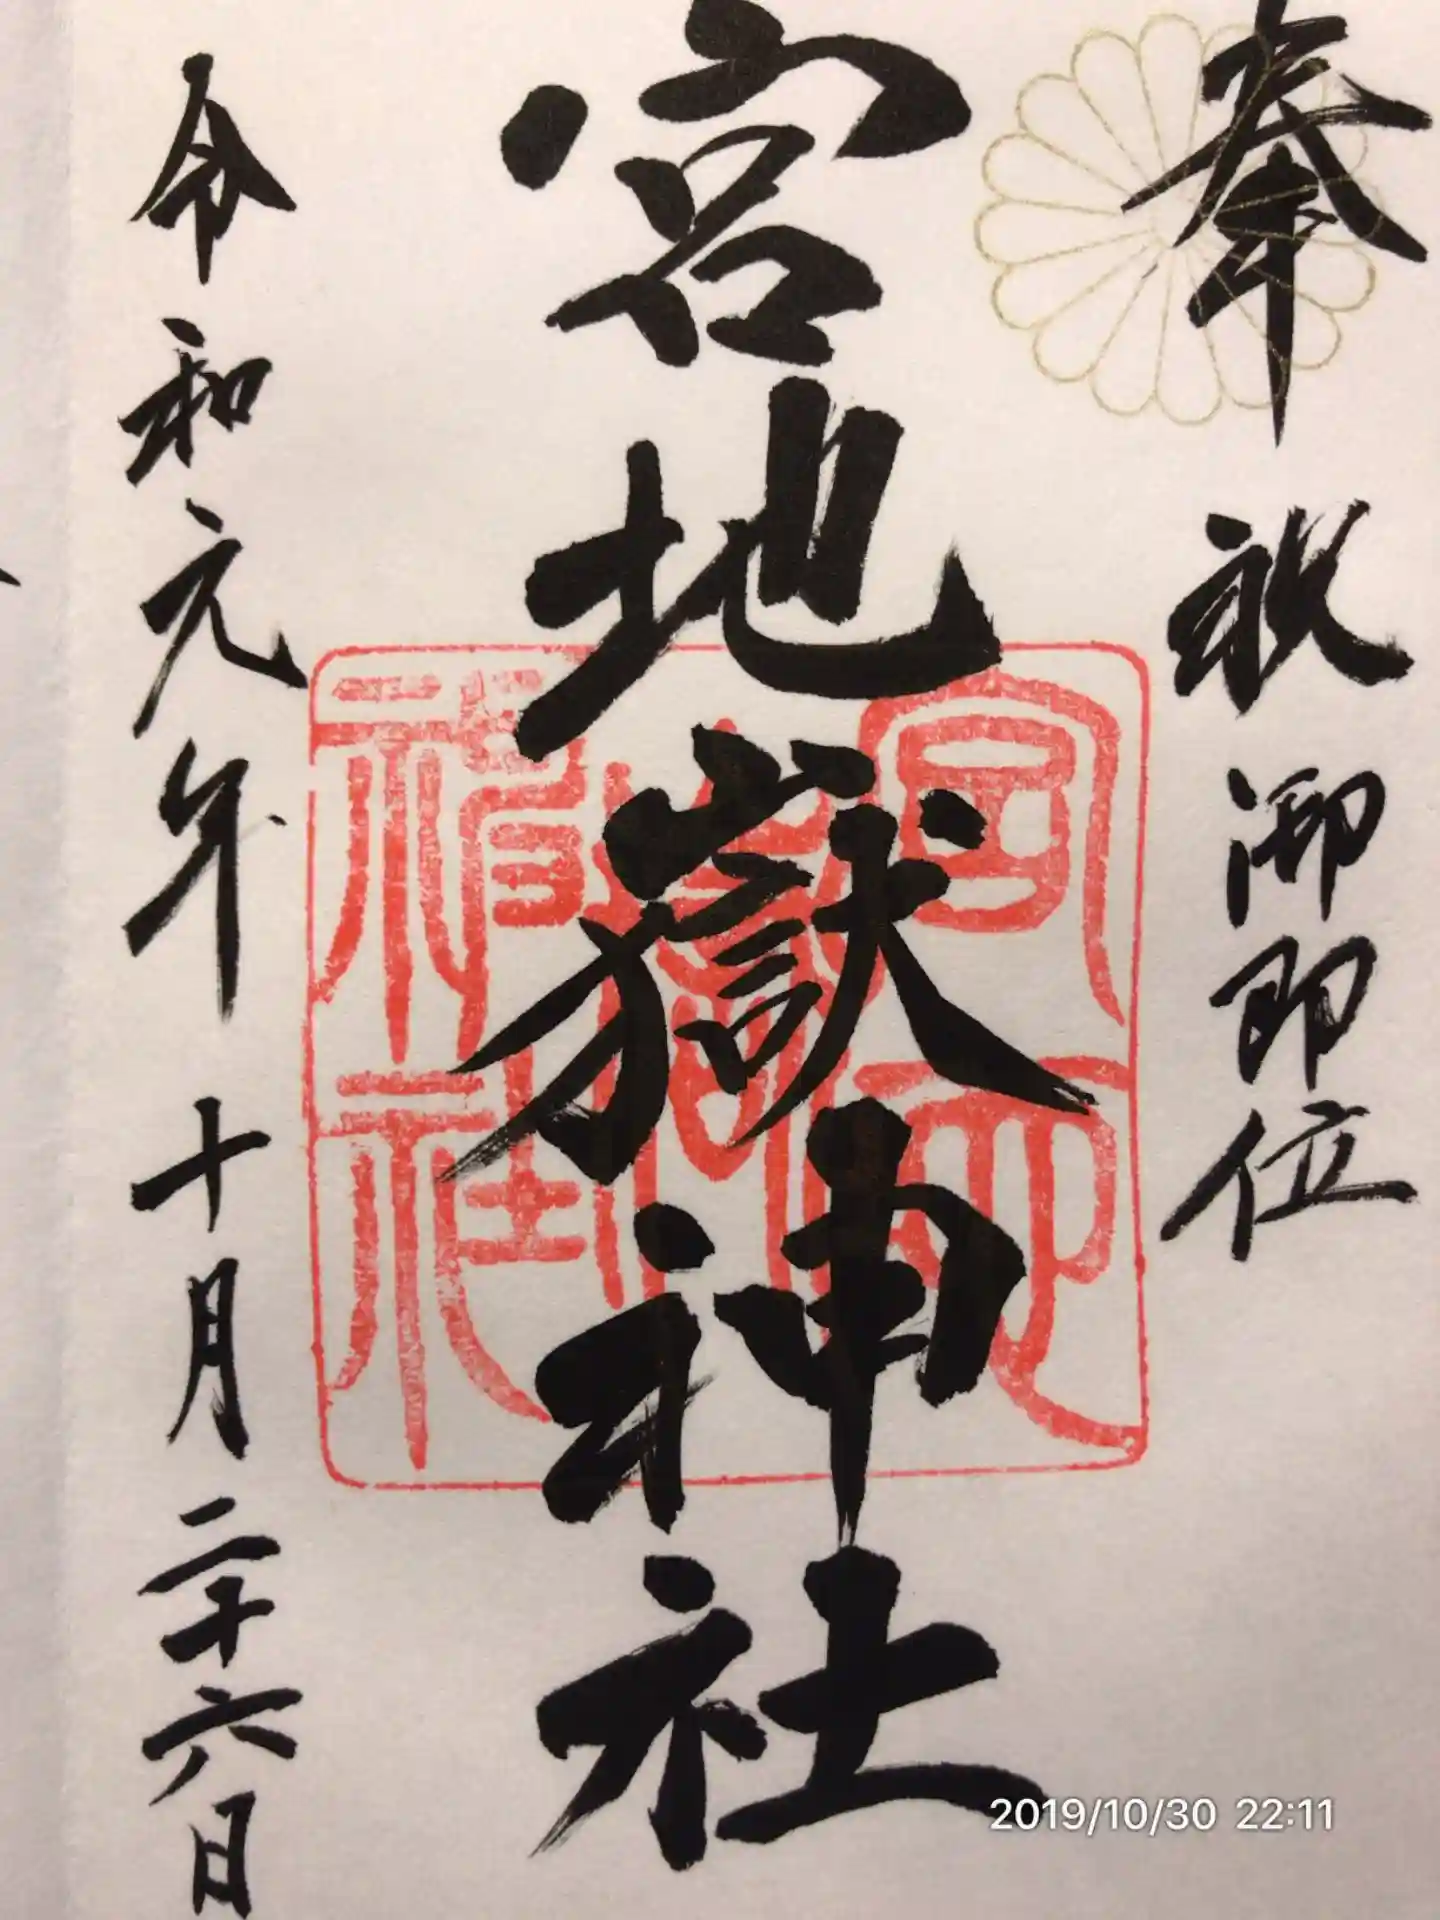 奉祝御即位
宮地嶽神社
令和元年十月二十六日
宮地嶽神社
2019/10/30 22:11